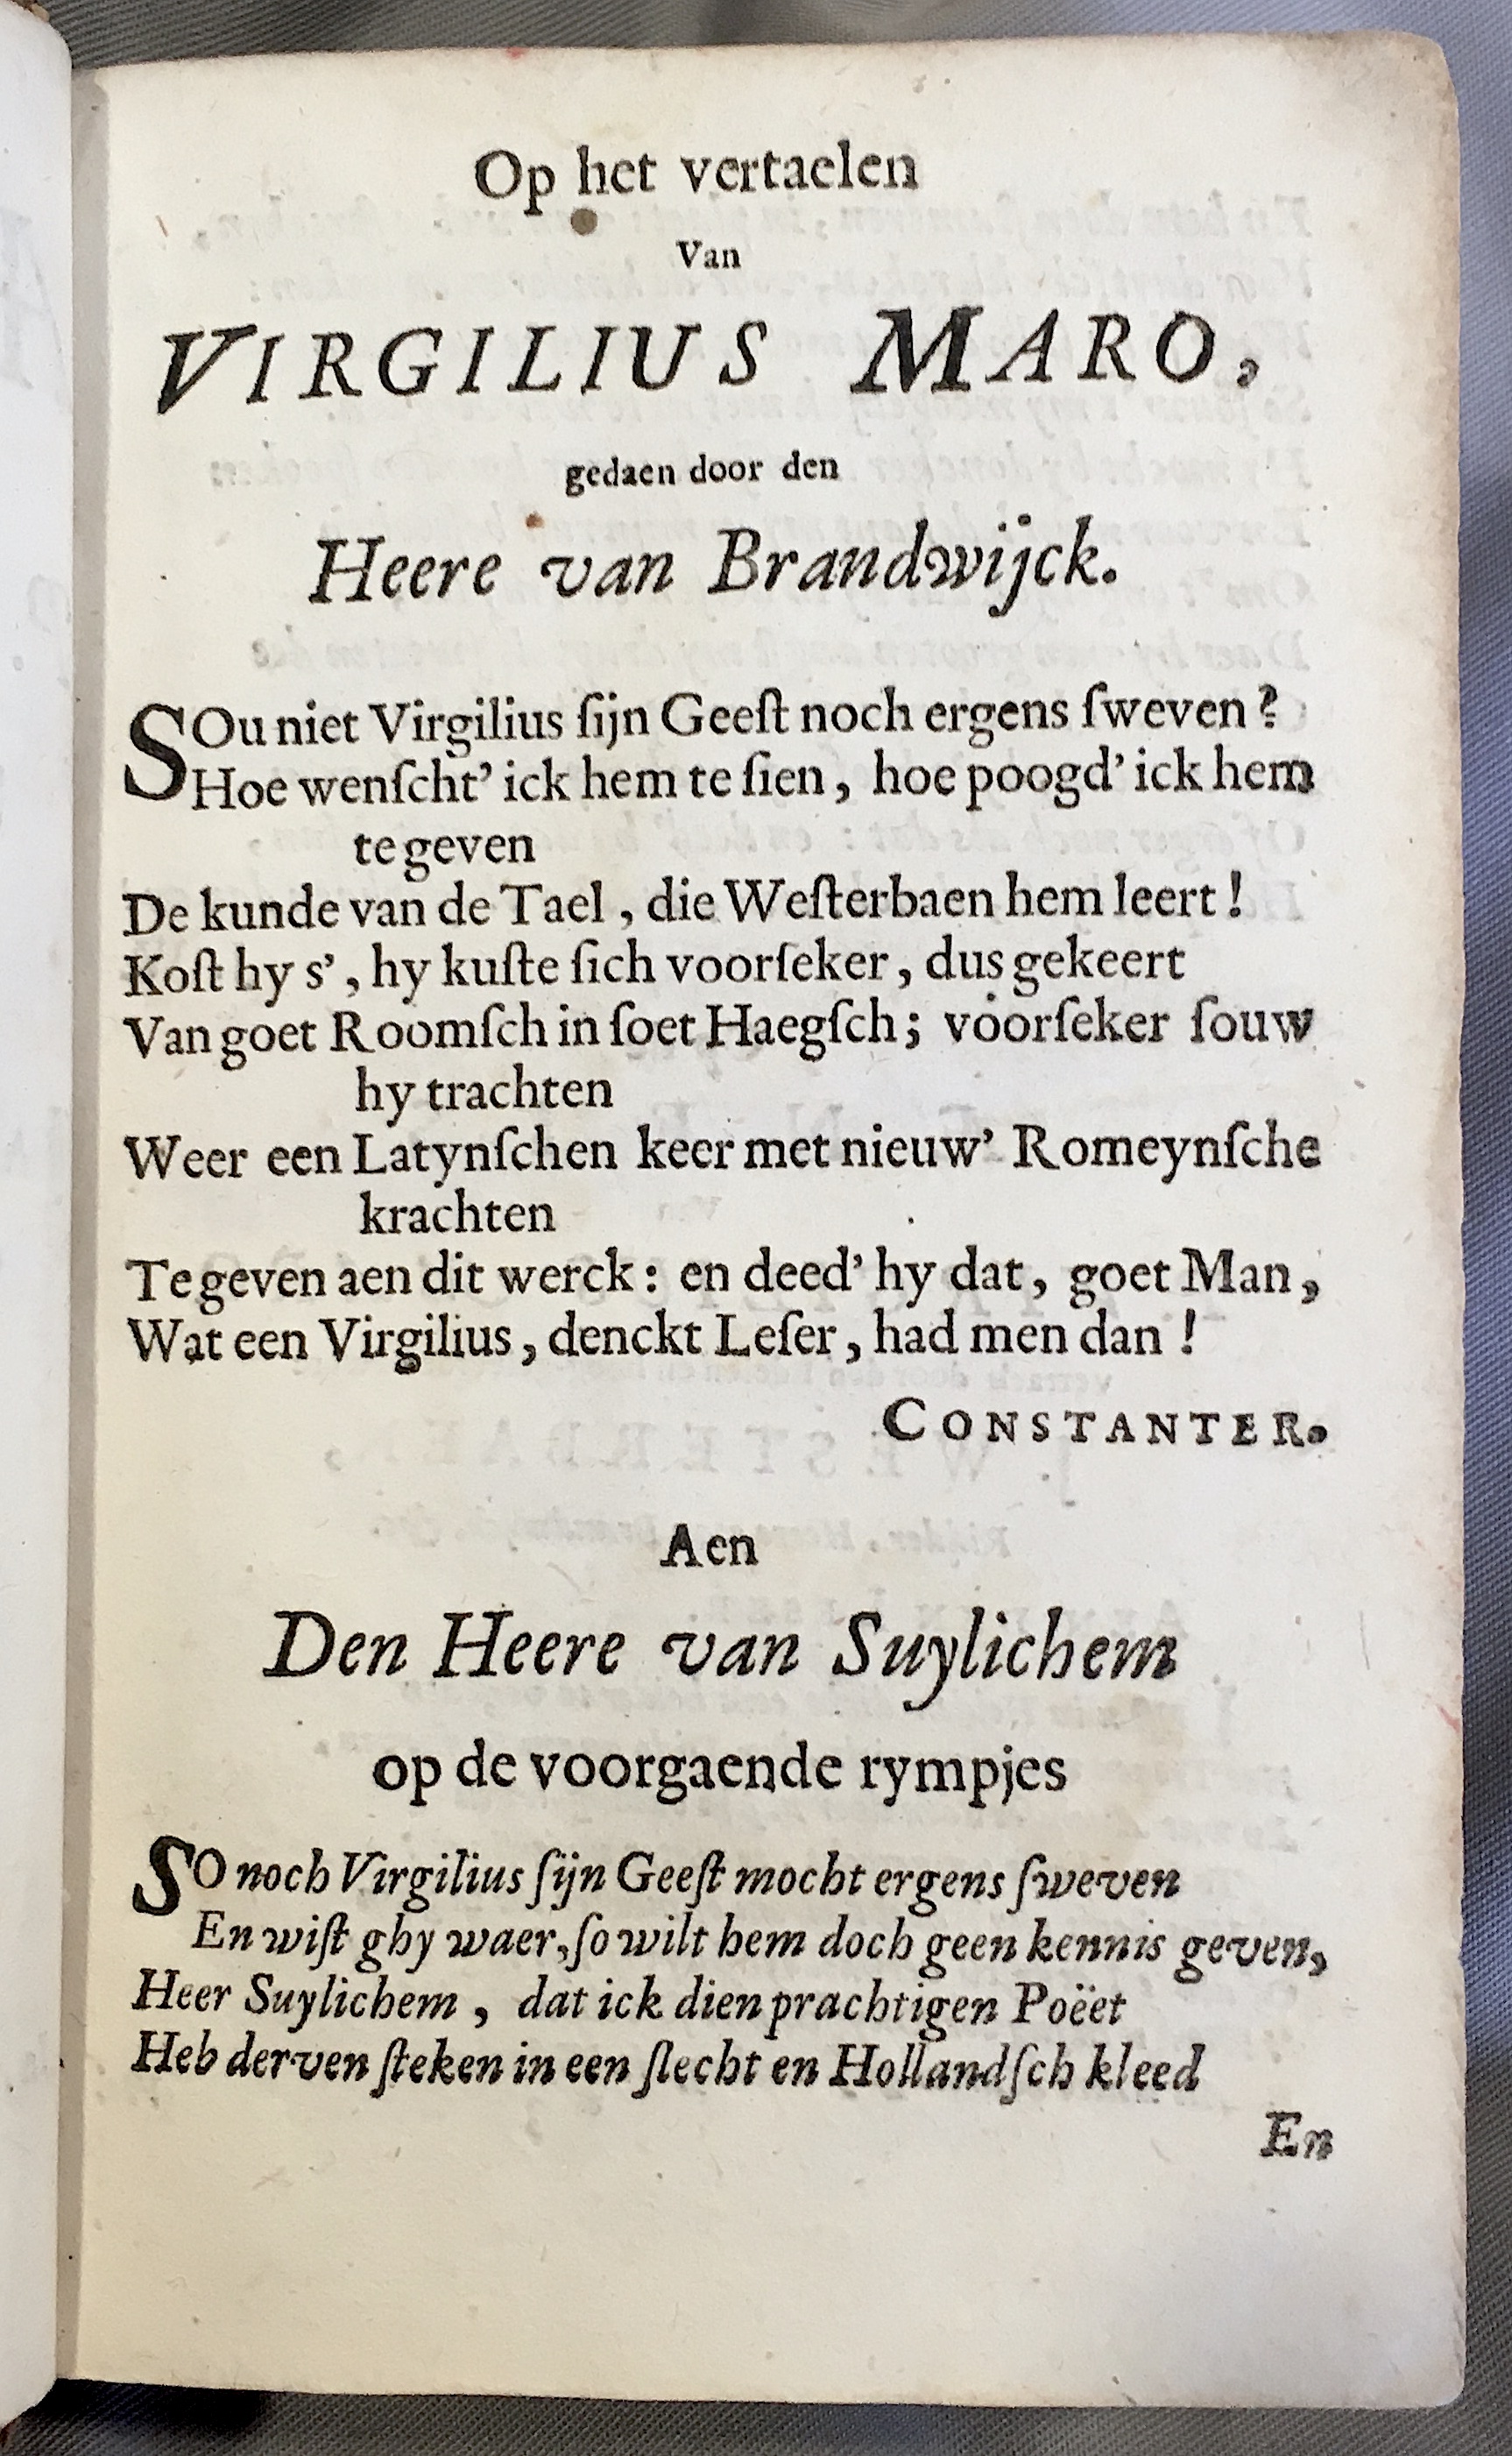 Op het vertaelen
Van
VIRGILIUS MARO,
gedaen door den
Heere van Brandwijck.
SOu niet Virgilius ſijn Geeſt noch ergens ſweven?
Hoe wenſcht’ ick hem te ſien, hoe poogd’ ick hem
te geven
De kunde van de Tael, die Weſterbaen hem leert!
Koſt hy s’, hy kuſte ſich voorſeker, dus gekeert
Van goet Roomſch in ſoet Haegſch; voorſeker ſouw
hy trachten
Weer een Latynſchen keer met nieuw’ Romeynſche
krachten
Te geven aen dit werck: en deed’ hy dat, goet Man,
Wat een Virgilius, denckt Leſer, had men dan!
CONSTANTER.
Aen
Den Heere van Suylichem
op de voorgaende rympjes
SO noch Virgilius ſijn Geeſt mocht ergens ſweven
En wiſt ghy waer, ſo wilt hem doch geen kennis geven,
Heer Suylichem, dat ick dien prachtigen Poëet
Heb derven ſteken in een ſlecht en Hollandſch kleed
En